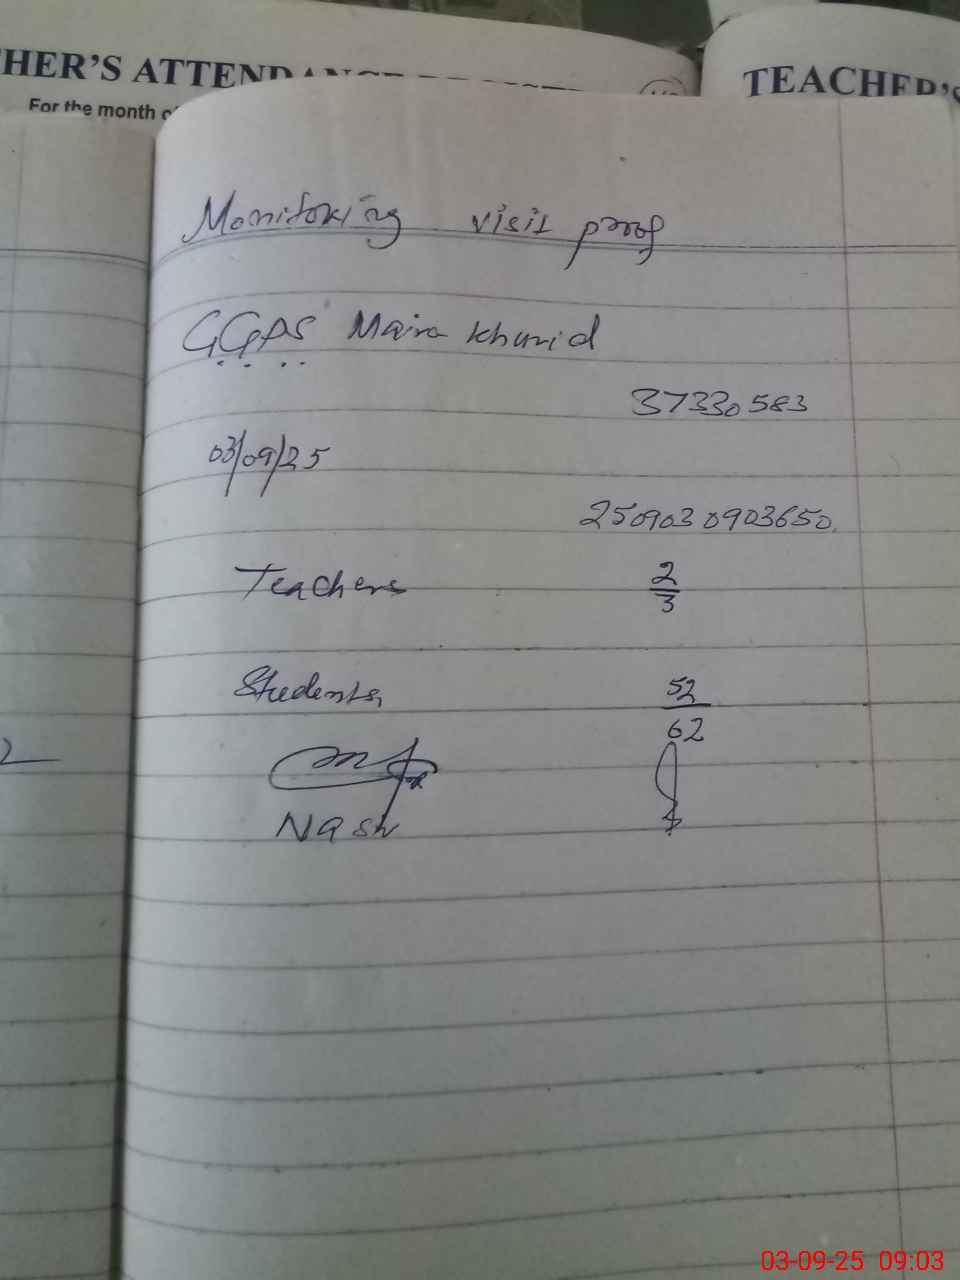 HER'S ATTENDANCE REGISTER
For the month of
TEACHER'S
Monitoring visit proof
GGPS Maira Khurid
37330583
03/09/25
2509030903650
Teachers 2/3
Students 52/62
Nash
03-09-25 09:03